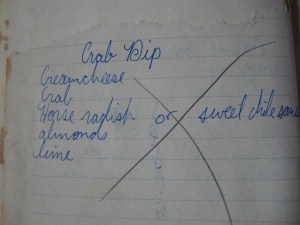 Crab Dip
Creamcheese
Crab
Horse radish or sweet chile sauce
almonds
lime